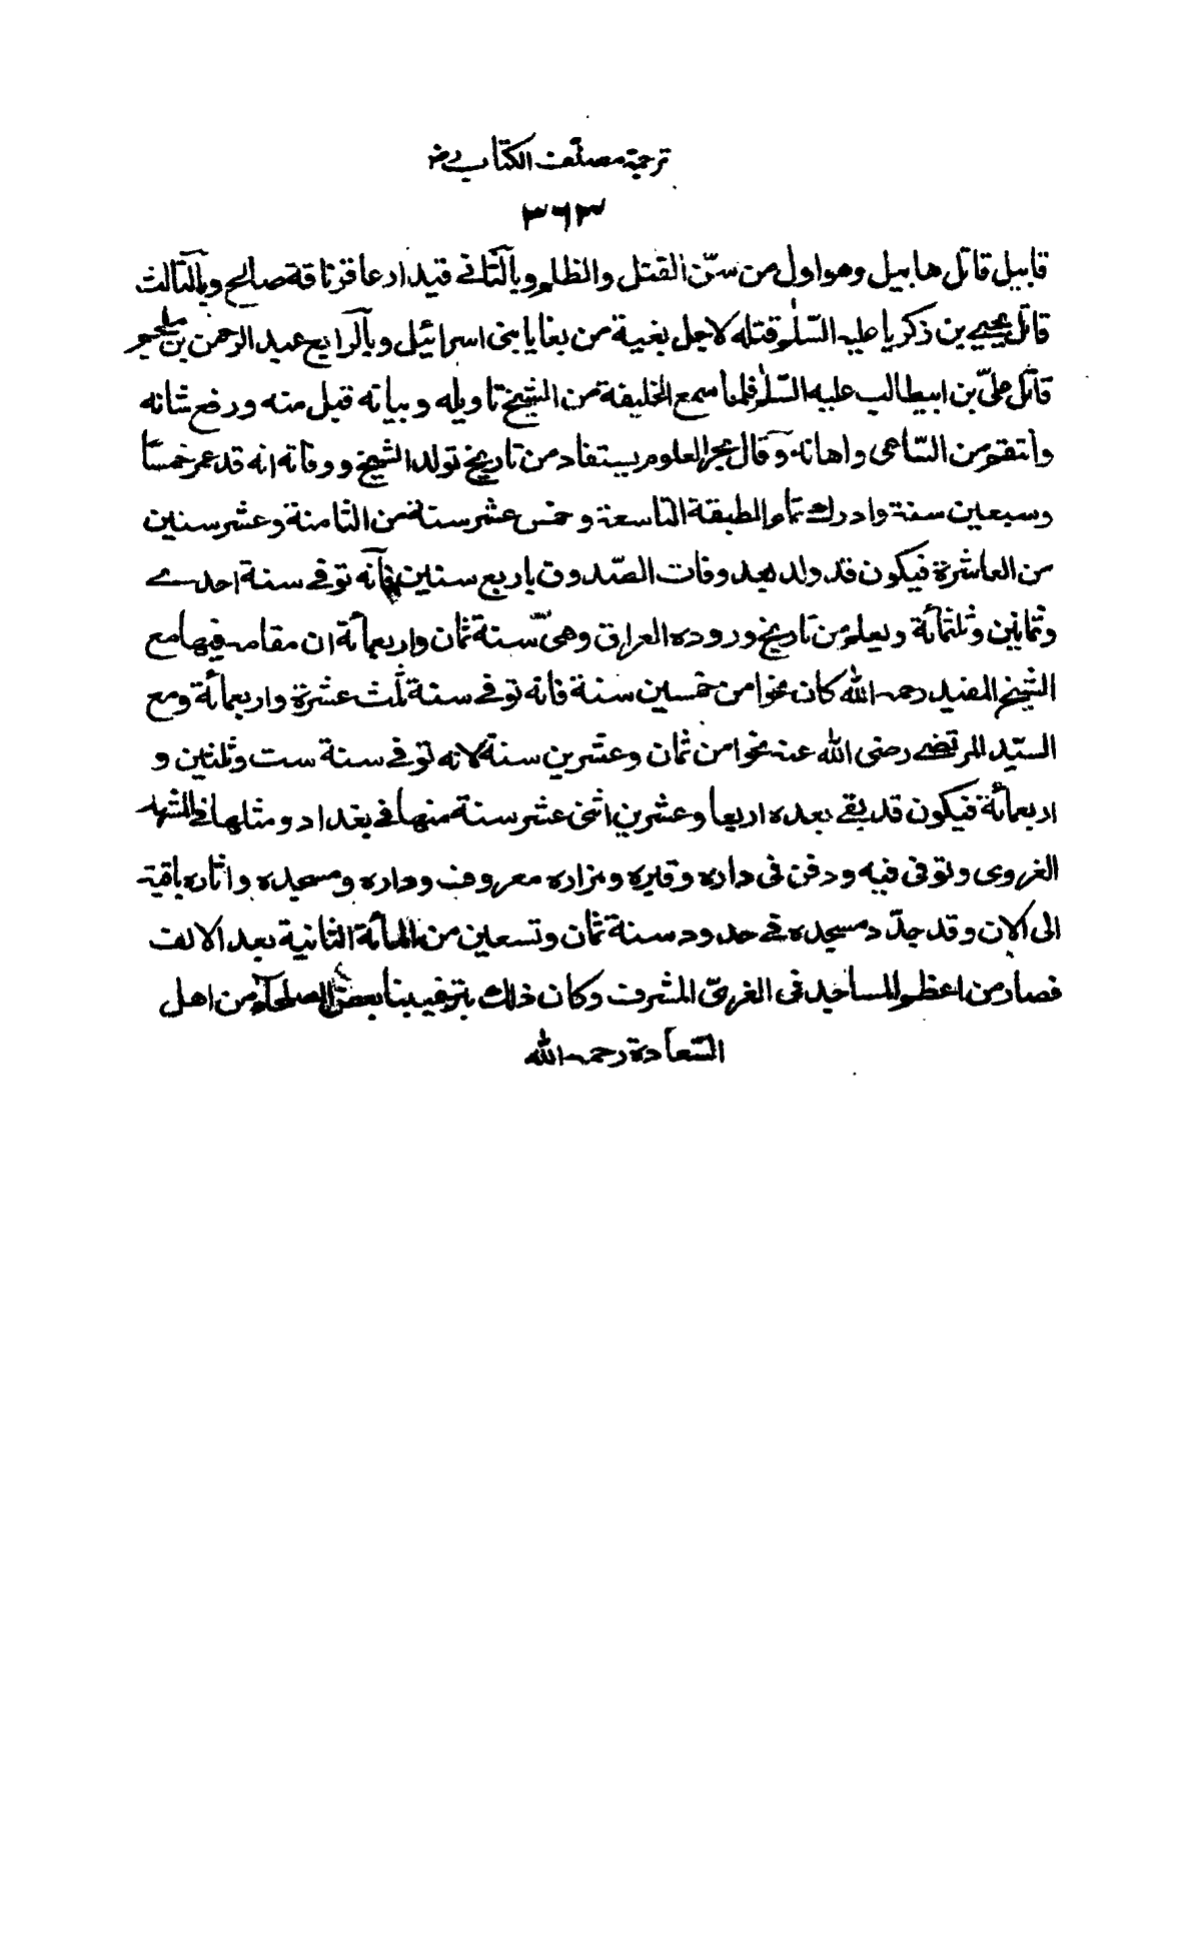 ترجمة مصنف الكتاب رض
٣٦٣
قابيل قاتل هابيل وهو اول من سنّ القتل والظلم وبالثانى قيدار عاقر ناقة صالح وبالثالث
قاتل يحيى بن زكريا عليه السّلم قتله لاجل بغية من بغايا بنى اسرائيل وبالرابع عبد الرحمن بن ملجم
قاتل علىّ بن ابيطالب عليه السّلم فلما سمع الخليفة من الشيخ تاويله وبيانه قبل منه ورفع شانه
وانتقم من السّاعى واهانه وقال بحر العلوم يستفاد من تاريخ تولد الشيخ ووفاته انه قد عمر خمسًا
وسبعين سنة وادرك تمام الطبقة التاسعة وخمس عشر سنة من الثامنة وعشر سنين
من العاشرة فيكون قد ولد بعد وفات الصّدوق باربع سنين فانّه توفى سنة احدى
وثمانين وثلثمائة ويعلم من تاريخ وروده العراق وهى سنة ثمان واربعمائة ان مقامه فيها مع
الشيخ المفيد رحمه الله كان نحوا من خمسين سنة فانه توفى سنة ثلث عشرة واربعمائة ومع
السيّد المرتضى رضى الله عنه نحوا من ثمان وعشرين سنة لانه توفى سنة ست وثلثين و
اربعمائة فيكون قد بقى بعده اربعا وعشرين اثنى عشر سنة منها فى بغداد ومثلها فى المشهد
الغروى وتوفى فيه ودفن فى داره وقبره ومزاره معروف وداره ومسجده واثاره باقية
الى الان وقد جدّد مسجده فى حدود سنة ثمان وتسعين من المائة الثانية بعد الالف
فصار من اعظم المساجد فى الغرىّ المشرف وكان ذلك بترغيبنا بعض الصلحاء من اهل
السّعادة رحمه الله